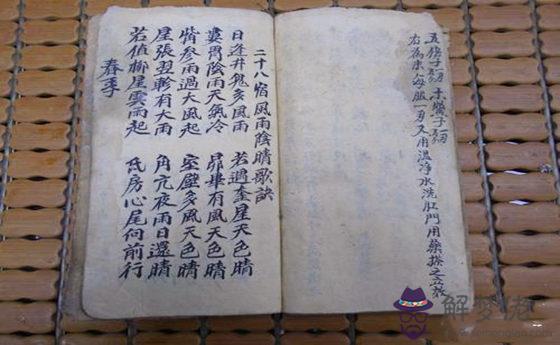 五倍子 木鱉子
右為末每服一 又用溫淨水洗肛門用藥搽之立效
二十八宿風雨陰晴歌訣
日逢井鬼多風雨 若遇奎星天色晴
婁胃陰雨天氣冷 昴畢有風天色晴
觜參雨過大風起 室壁多風天色晴
屋張翌軫有大雨 角亢夜雨日還晴
若值柳星雲雨起 氐房心尾向前行
春季
解梦佬